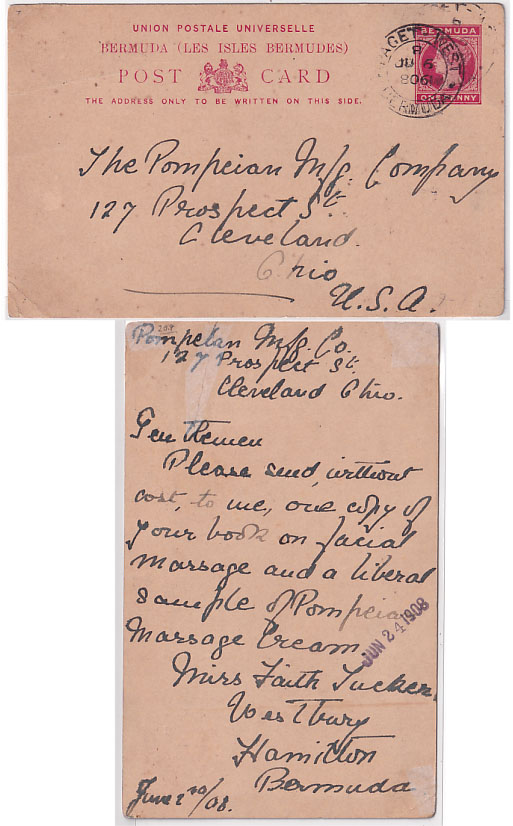 UNION POSTALE UNIVERSELLE
BERMUDA (LES ISLES BERMUDES)
POST CARD
THE ADDRESS ONLY TO BE WRITTEN ON THIS SIDE.
BERMUDA
ONE PENNY
PAGET WEST
JU 6
BERMUDA
The Pompeian Mfg. Company
127 Prospect St.
Cleveland.
Ohio
U.S.A.
Pompeian Mfg. Co.
127 Prospect St.
Cleveland Ohio.
Gentlemen
Please send, without
cost, to me, one copy of
your book on facial
massage and a liberal
sample of Pompeian
Massage Cream.
JUN 24 1908
Miss Faith Tucker.
Westbury
Hamilton
Bermuda
June 2nd/08.